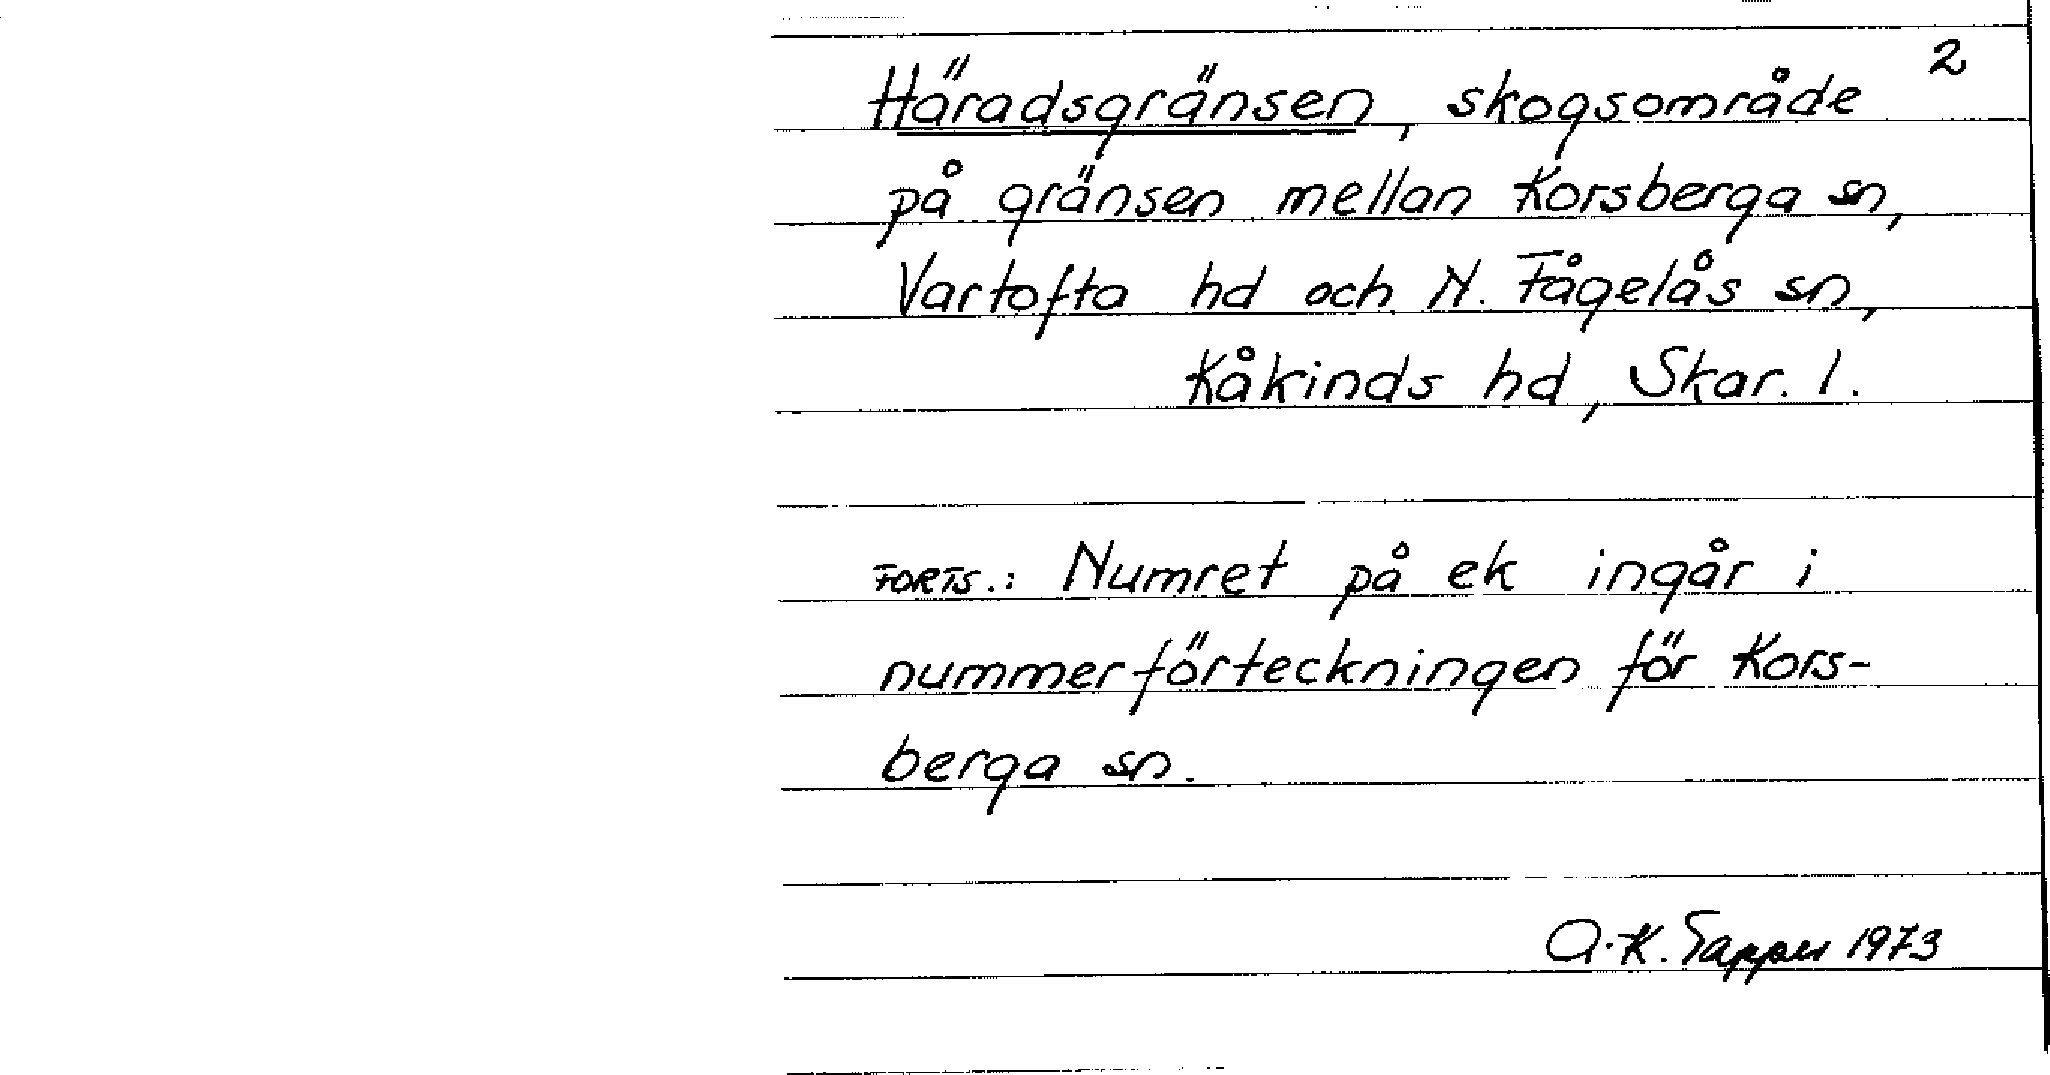 2
Häradsgränsen, skogsområde
på gränsen mellan Korsberga sn,
Vartofta hd och N. Fågelås sn,
Kåkinds hd, Skar. l.
FORTS.: Numret på ek ingår i
nummerförteckningen för Kors-
berga sn.
A.-K. Tapper 1973